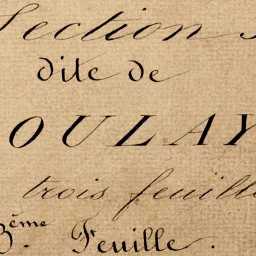 Section
dite de
OULAY
trois feuill
3ème Feuille.